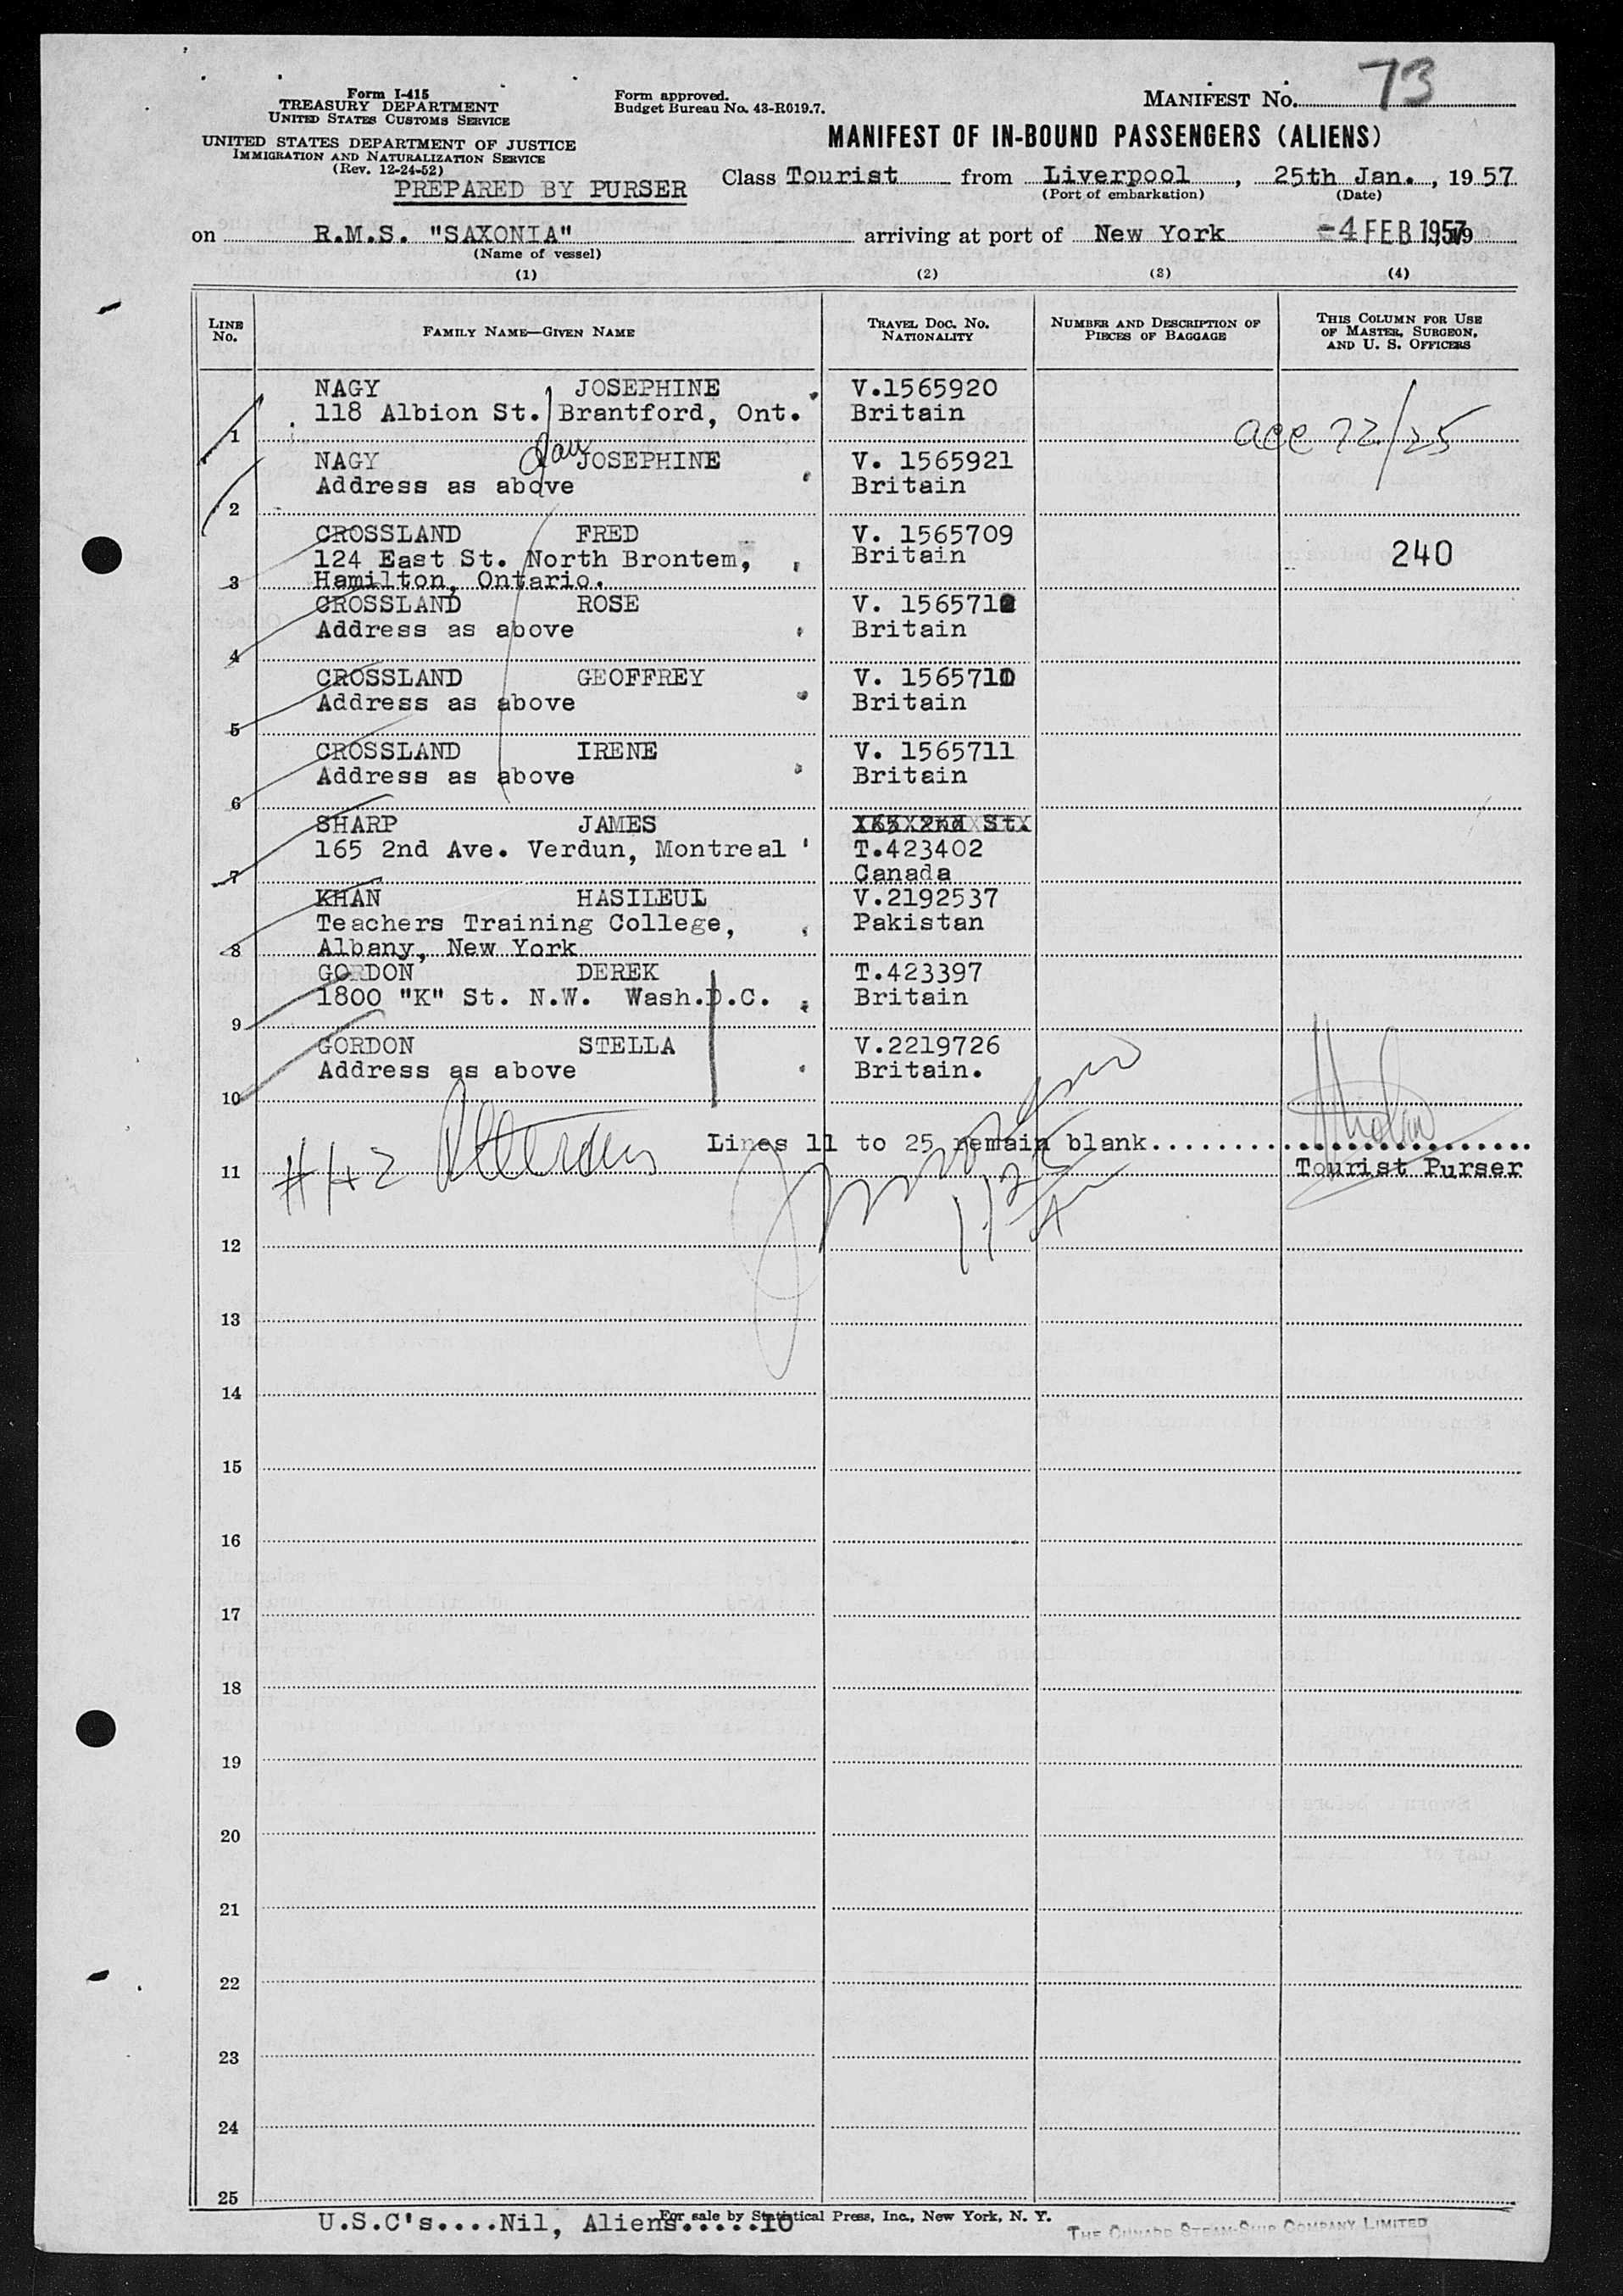 Form I-415
TREASURY DEPARTMENT
UNITED STATES CUSTOMS SERVICE
UNITED STATES DEPARTMENT OF JUSTICE
IMMIGRATION AND NATURALIZATION SERVICE
(Rev. 12-24-52)
PREPARED BY PURSER
Form approved.
Budget Bureau No. 43-R019.7.
MANIFEST No. 73
MANIFEST OF IN-BOUND PASSENGERS (ALIENS)
Class Tourist from Liverpool, 25th Jan., 1957
(Port of embarkation) (Date)
on R.M.S. "SAXONIA" arriving at port of New York -4 FEB 1957 19
(Name of vessel)
(1) (2) (3) (4)
LINE No. FAMILY NAME—GIVEN NAME TRAVEL DOC. No. NATIONALITY NUMBER AND DESCRIPTION OF PIECES OF BAGGAGE THIS COLUMN FOR USE OF MASTER, SURGEON, AND U. S. OFFICERS
NAGY JOSEPHINE V.1565920
118 Albion St. Brantford, Ont. Britain
1
NAGY JOSEPHINE V. 1565921
Address as above Britain
2
CROSSLAND FRED V. 1565709
124 East St. North Brontem, Britain 240
3 Hamilton, Ontario.
CROSSLAND ROSE V. 1565712
Address as above Britain
4
CROSSLAND GEOFFREY V. 1565710
Address as above Britain
5
CROSSLAND IRENE V. 1565711
Address as above Britain
6
SHARP JAMES 165 2nd St.
165 2nd Ave. Verdun, Montreal T.423402
7 Canada
KHAN HASILEUL V.2192537
Teachers Training College, Pakistan
8 Albany, New York
GORDON DEREK T.423397
1800 "K" St. N.W. Wash.D.C. Britain
9
GORDON STELLA V.2219726
Address as above Britain.
10
Lines 11 to 25 remain blank
11 #1+2 Tourist Purser
12
13
14
15
16
17
18
19
20
21
22
23
24
25
For sale by Statistical Press, Inc., New York, N. Y.
U.S.C's....Nil, Aliens.....10
THE CUNARD STEAM-SHIP COMPANY LIMITED